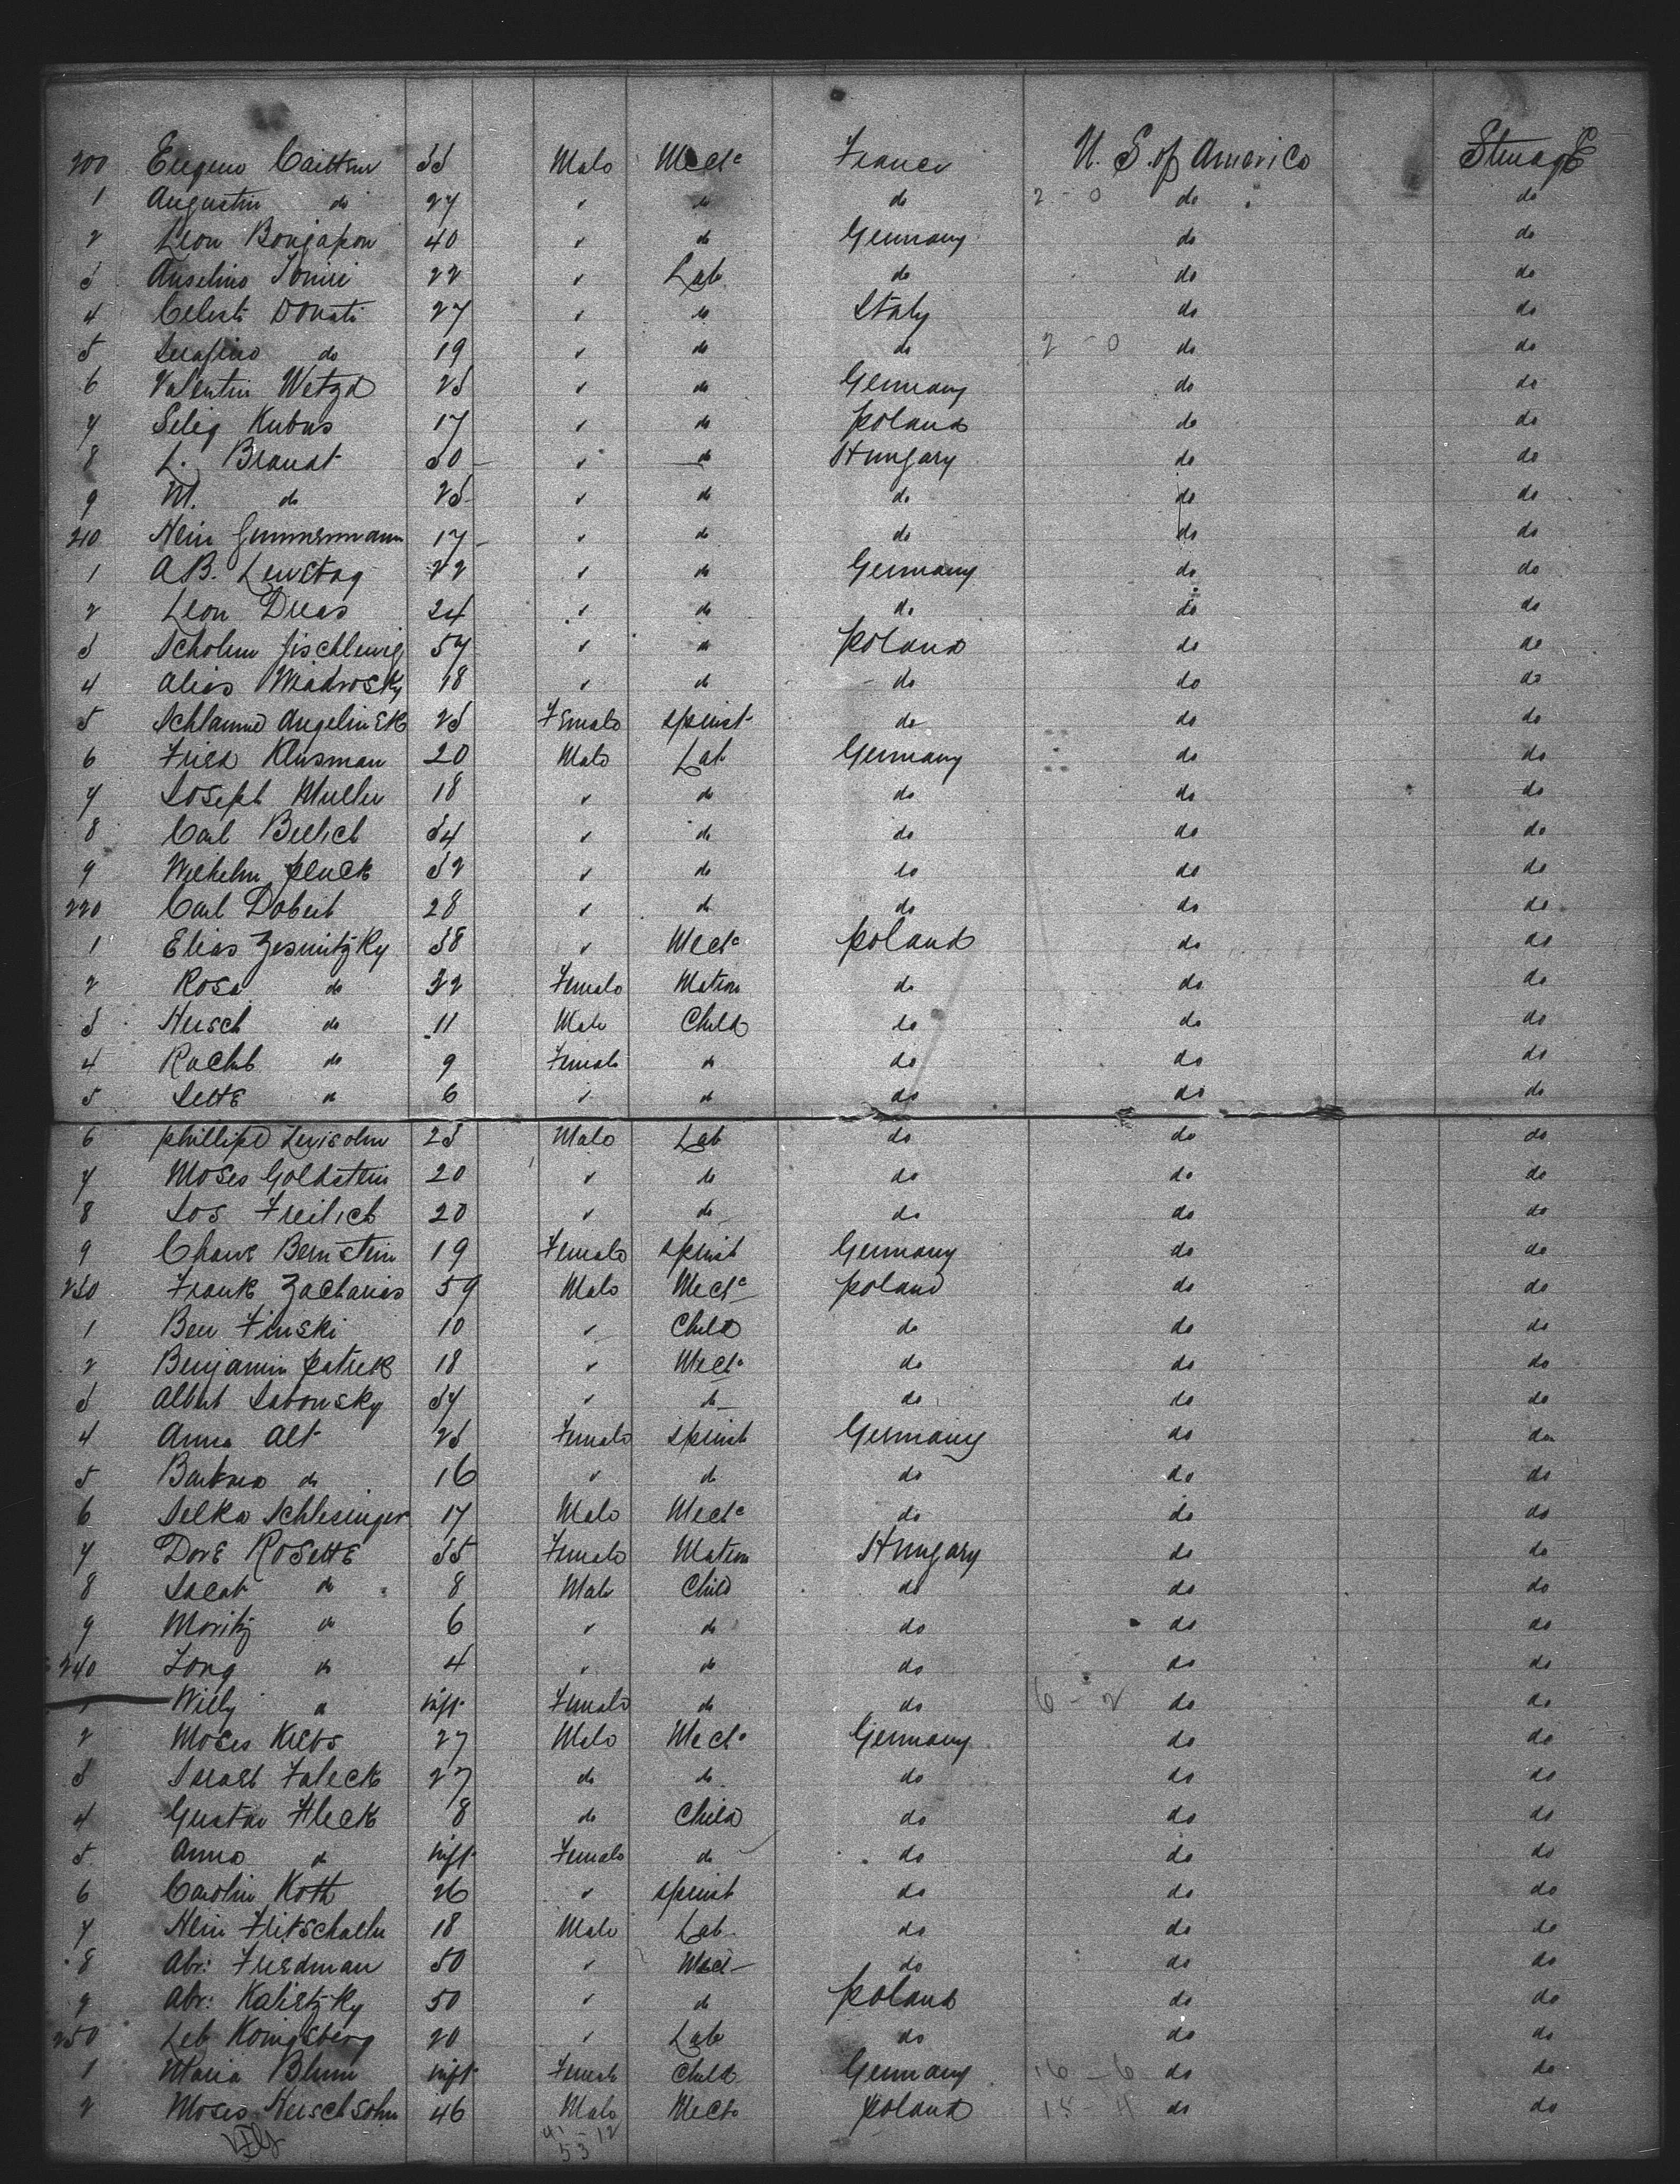 200 Eugene 33 Male Mech France U. S. of America Steerage
1 Augustin do 27 " do do 2 - 0 do do
2 Leon 40 " do Germany do do
3 Anselmo 22 " Lab do do do
4 Celeste Donati 27 " do Italy do do
5 Serafino do 19 " do do 2 - 0 do do
6 Valentin Wetzel 23 " do Germany do do
7 Selig Kubus 17 " do Poland do do
8 L. Brandt 30 " do Hungary do do
9 M. do 23 " do do do do
210 Hein 17 " do do do do
1 A.B. 22 " do Germany do do
2 Leon 24 " do do do do
3 Scholem 57 " do Poland do do
4 Alias 18 " do do do do
5 Schlamme Angelinek 23 Female Spinst do do do
6 Fried Klusman 20 Male Lab Germany do do
7 Joseph Muller 18 " do do do do
8 Carl 34 " do do do do
9 Wilhelm 32 " do do do do
220 Carl 28 " do do do do
1 Elias Zesnitzky 38 " Mech Poland do do
2 Rosa do 32 Female Matron do do do
3 Hersch do 11 Male Child do do do
4 Rachel do 9 Female do do do do
5 Jette do 6 " do do do do
6 Phillipe Levisohn 23 Male Lab do do do
7 Moses Goldstein 20 " do do do do
8 Jos Freilich 20 " do do do do
9 Chane Bernstein 19 Female Spinst Germany do do
230 Frank Zacharias 59 Male Mech Poland do do
1 Ben Finski 10 " Child do do do
2 Benjamin Patrek 18 " Mech do do do
3 Albert Labonsky 37 " do do do do
4 Anna Alt 23 Female Spinst Germany do do
5 Barbara do 16 " do do do do
6 Selka Schlesinger 17 Male Mech do do do
7 Dore Rosette 35 Female Matron Hungary do do
8 Jacob do 8 Male Child do do do
9 Moritz do 6 " do do do do
240 do 4 " do do do do
1 Willy do Inft Female do do 6 - 2 do do
2 Moses Krebs 27 Male Mech Germany do do
3 Israel Faleck 27 do do do do do
4 Gustav Fleck 8 do Child do do do
5 Anna do Inft Female do do do do
6 Carolin Koth 26 " Spinst do do do
7 Hein 18 Male Lab do do do
8 Abr: Friedman 50 " Mech do do do
9 Abr: Kalietzky 50 " do Poland do do
250 Leb Konigsberg 20 " Lab do do do
1 Maria Blum Inft Female Child Germany 16 - 6 do do
2 Moses Herschsohn 46 Male Mech Poland 18 - 11 do do
41 - 12
53